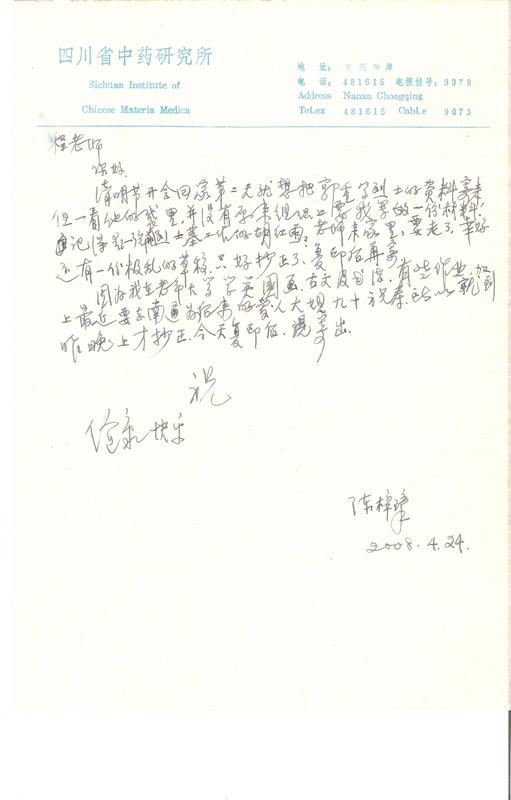 四川省中药研究所
Sichuan Institute of
Chinese Materia Medica
地 址：
电 话：481615 电报挂号：9078
Address Nanan Chongqing
Telex 481615 Cable 9073
程老师
你好
清明节开会回家第二天就想把 烈士的资料寄来
但一看他的 里，并没有原来组织上要我写的一份材料，
记得 烈士墓工作的胡红雨老师来家里，要走了，幸好
还有一份极乱的草稿，只好抄正了，复印后再寄
因为我在老年大学学英 国画、古文及书法，有些作业，加
上最近要去南通为后来的 人大坝九十祝寿，
昨晚上才抄正，今天复印后，寄出
祝
全家快乐
陈梓
2008.4.24.